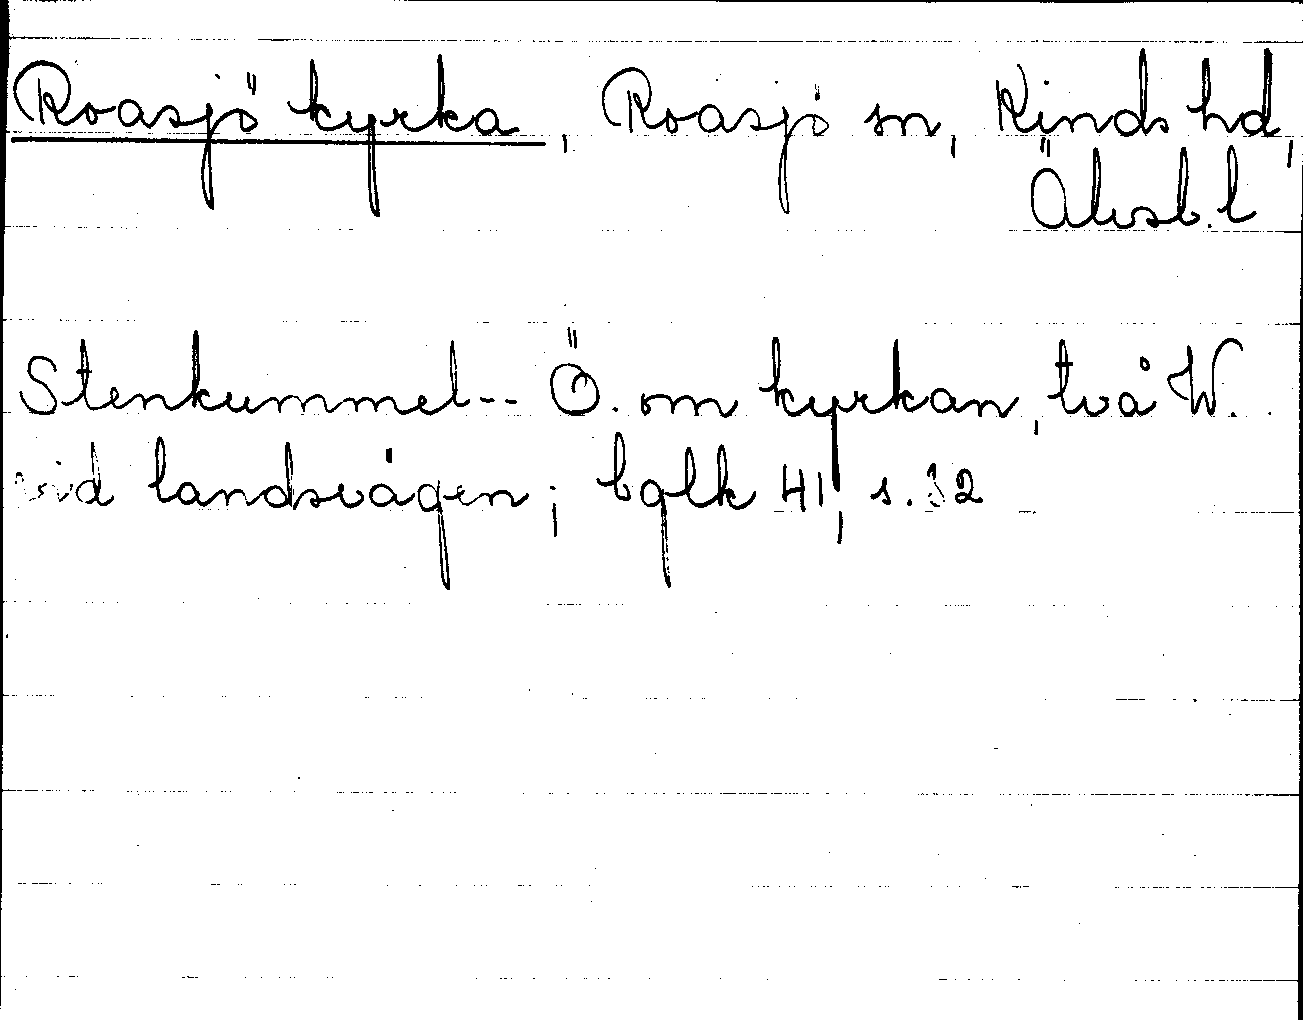 Roasjö kyrka, Roasjö sn, Kinds hd,
Älvsb. l
Stenkummel -- Ö. om kyrkan, två W.
vid landsvägen; bglk 41, s. 32